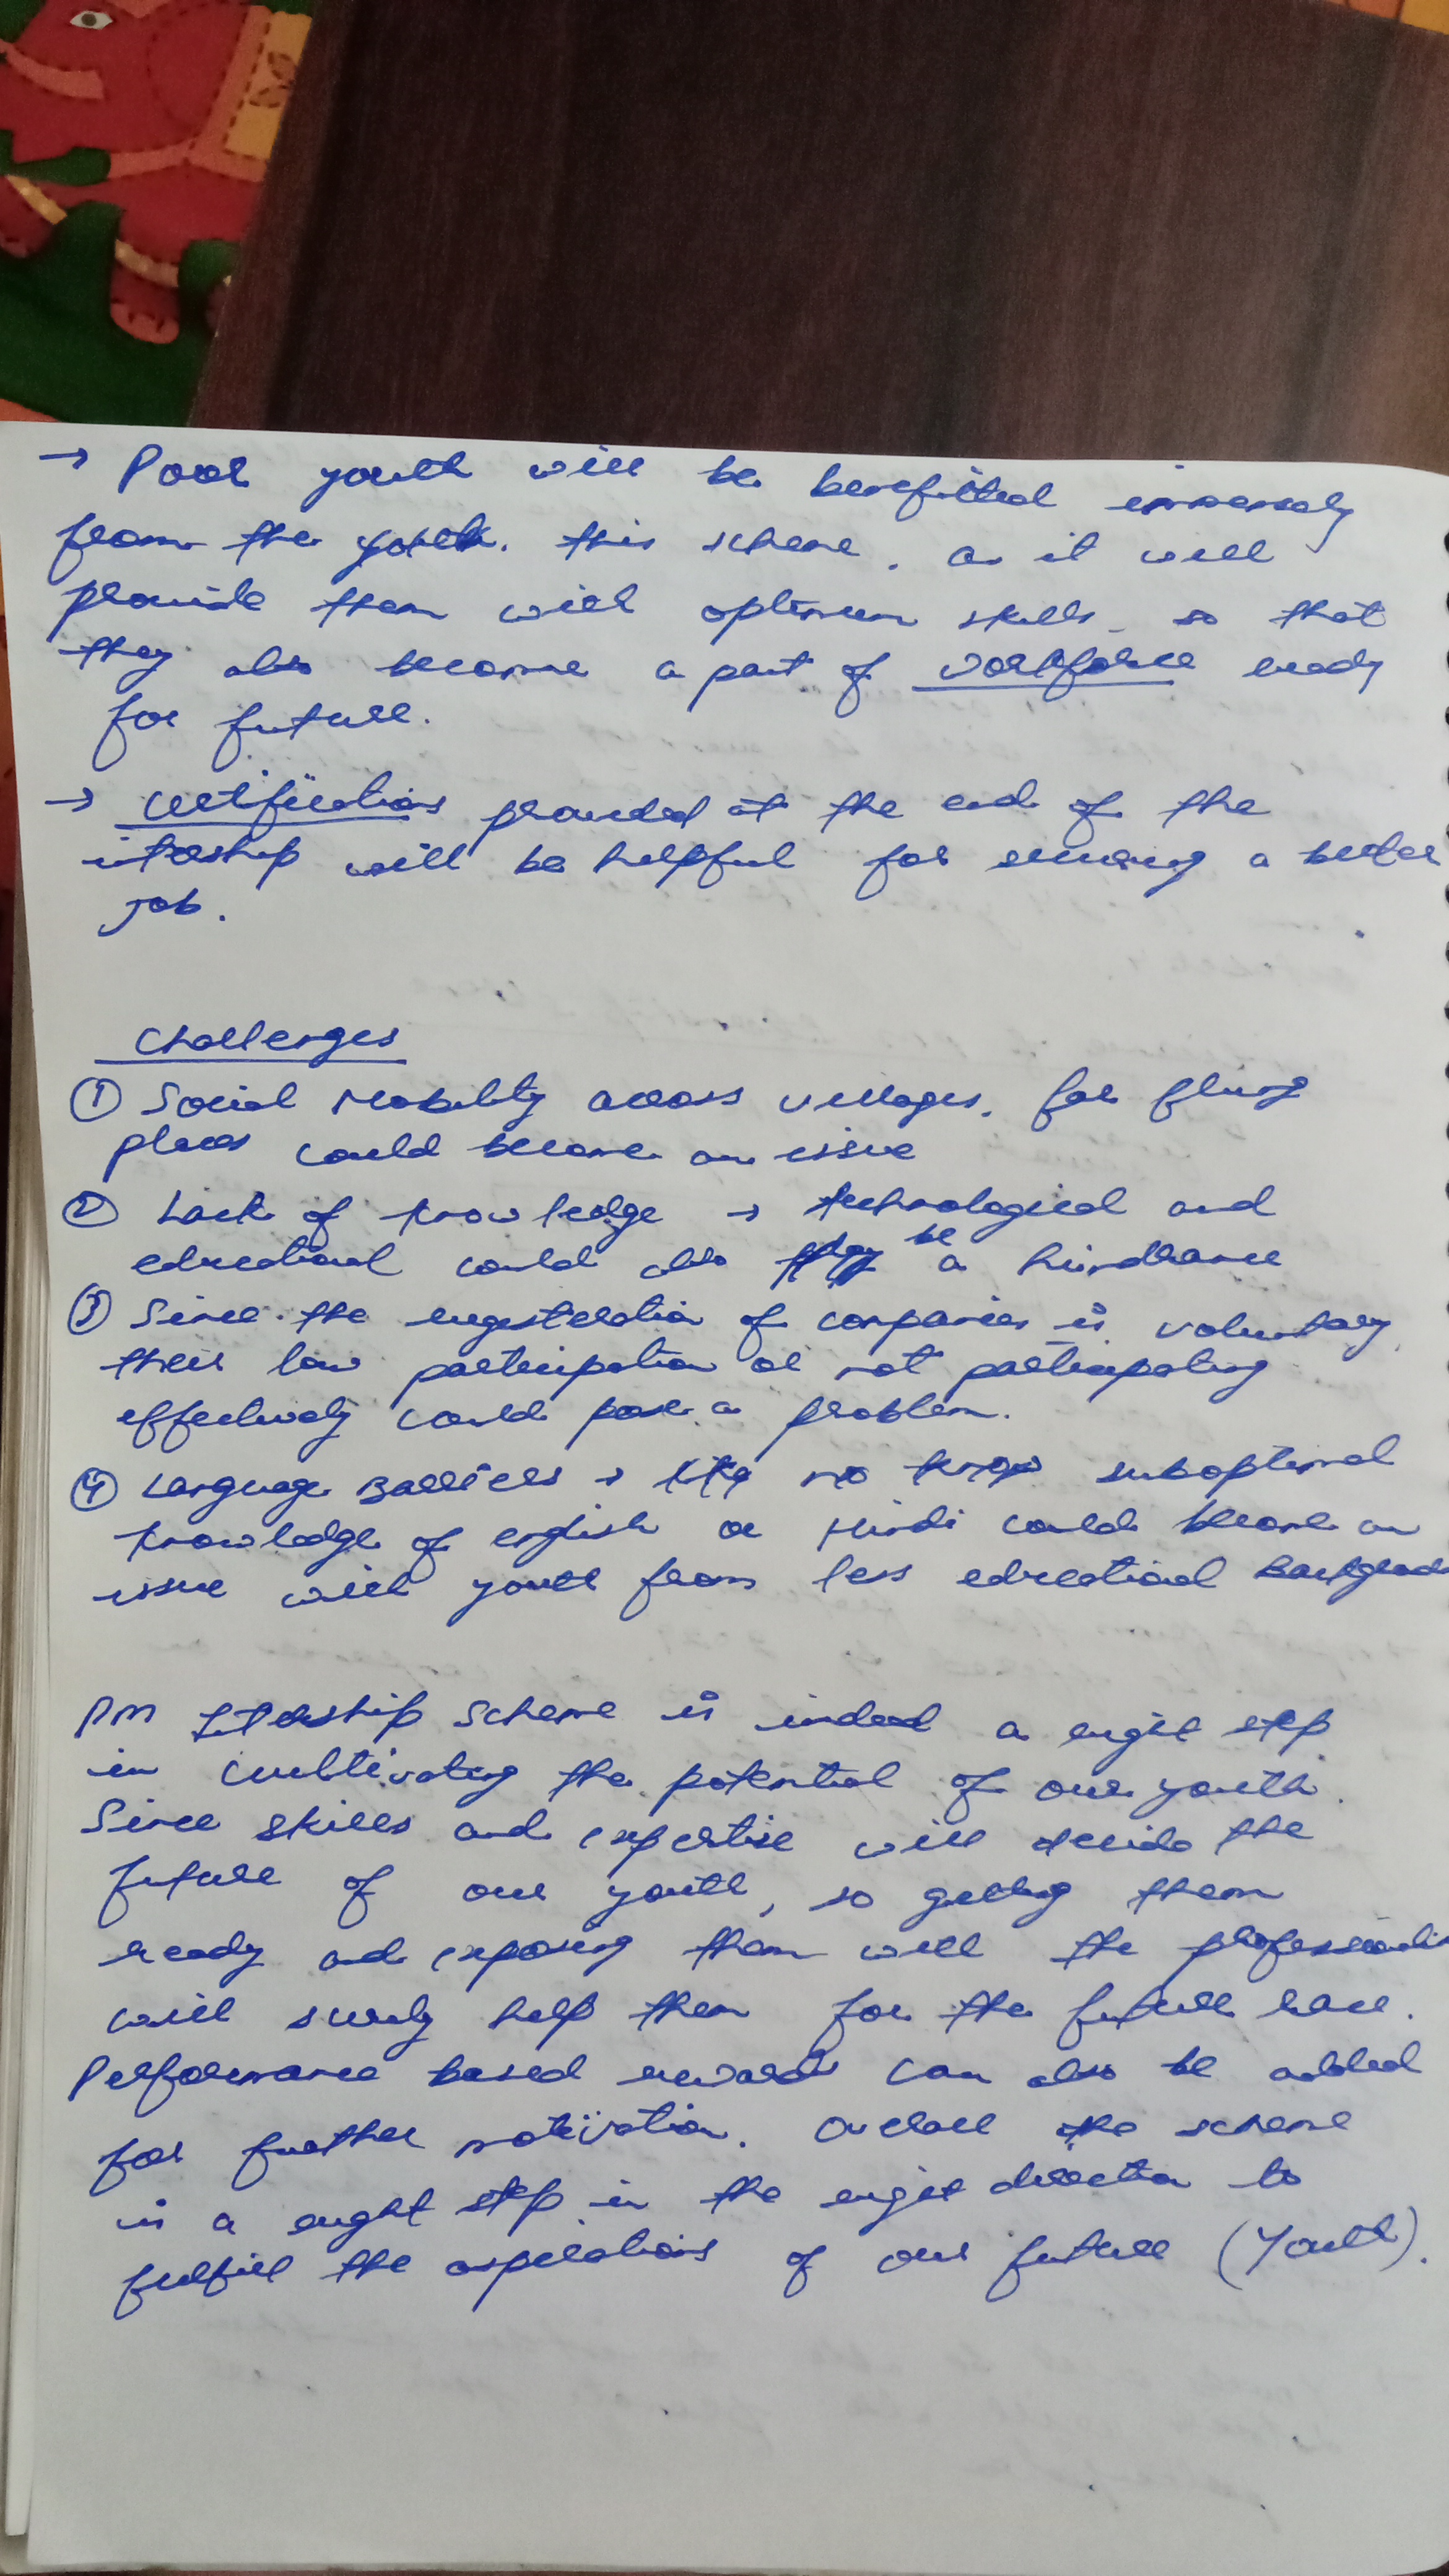 → Poor youth will be benefitted immensely
from the youth. this scheme, as it will
provide them with optimum skills so that
they also become a part of workforce ready
for future.
→ Certifications provided at the end of the
itership will be helpful for securing a better
job.
Challenges
① Social Mobility across villages, far flung
places could become an issue
② Lack of knowledge → technological and
educational could also be a hindrance
③ Since the registration of companies is voluntary,
their low participation or not participating
effectively could pose a problem.
④ Language Barriers → no suboptimal
knowledge of english or Hindi could become an
issue with youth from less educational
PM Itership Scheme is indeed a right step
in cultivating the potential of our youth.
Since skills and expertise will decide the
future of our youth, so getting them
ready and exposing them with the
will surely help them for the future race.
Performance based rewards can also be added
for further motivation. Overall the scheme
is a right step in the right direction to
fulfill the aspirations of our future (Youth).